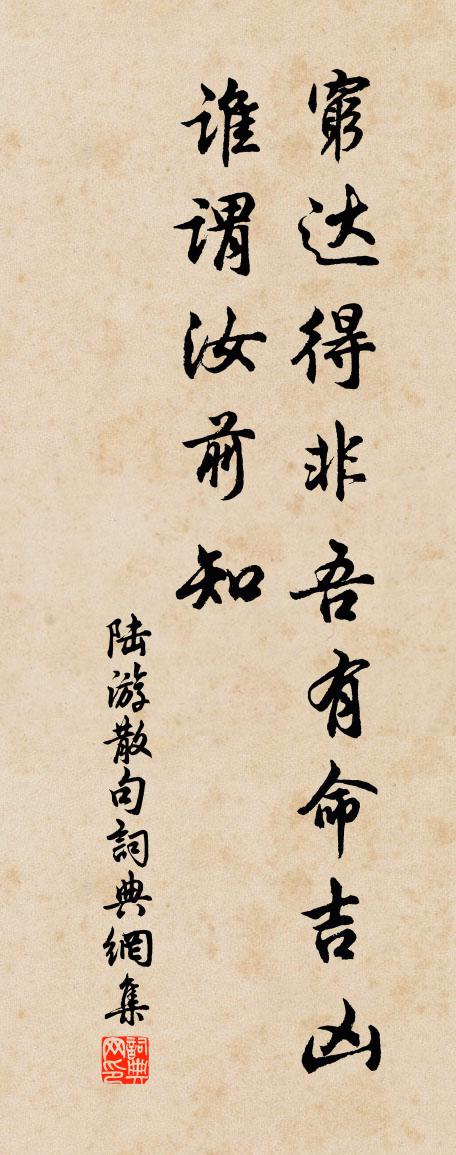 窮达得非吾有命吉凶
谁謂汝前知
陆游散句詞典網集
詞典网印